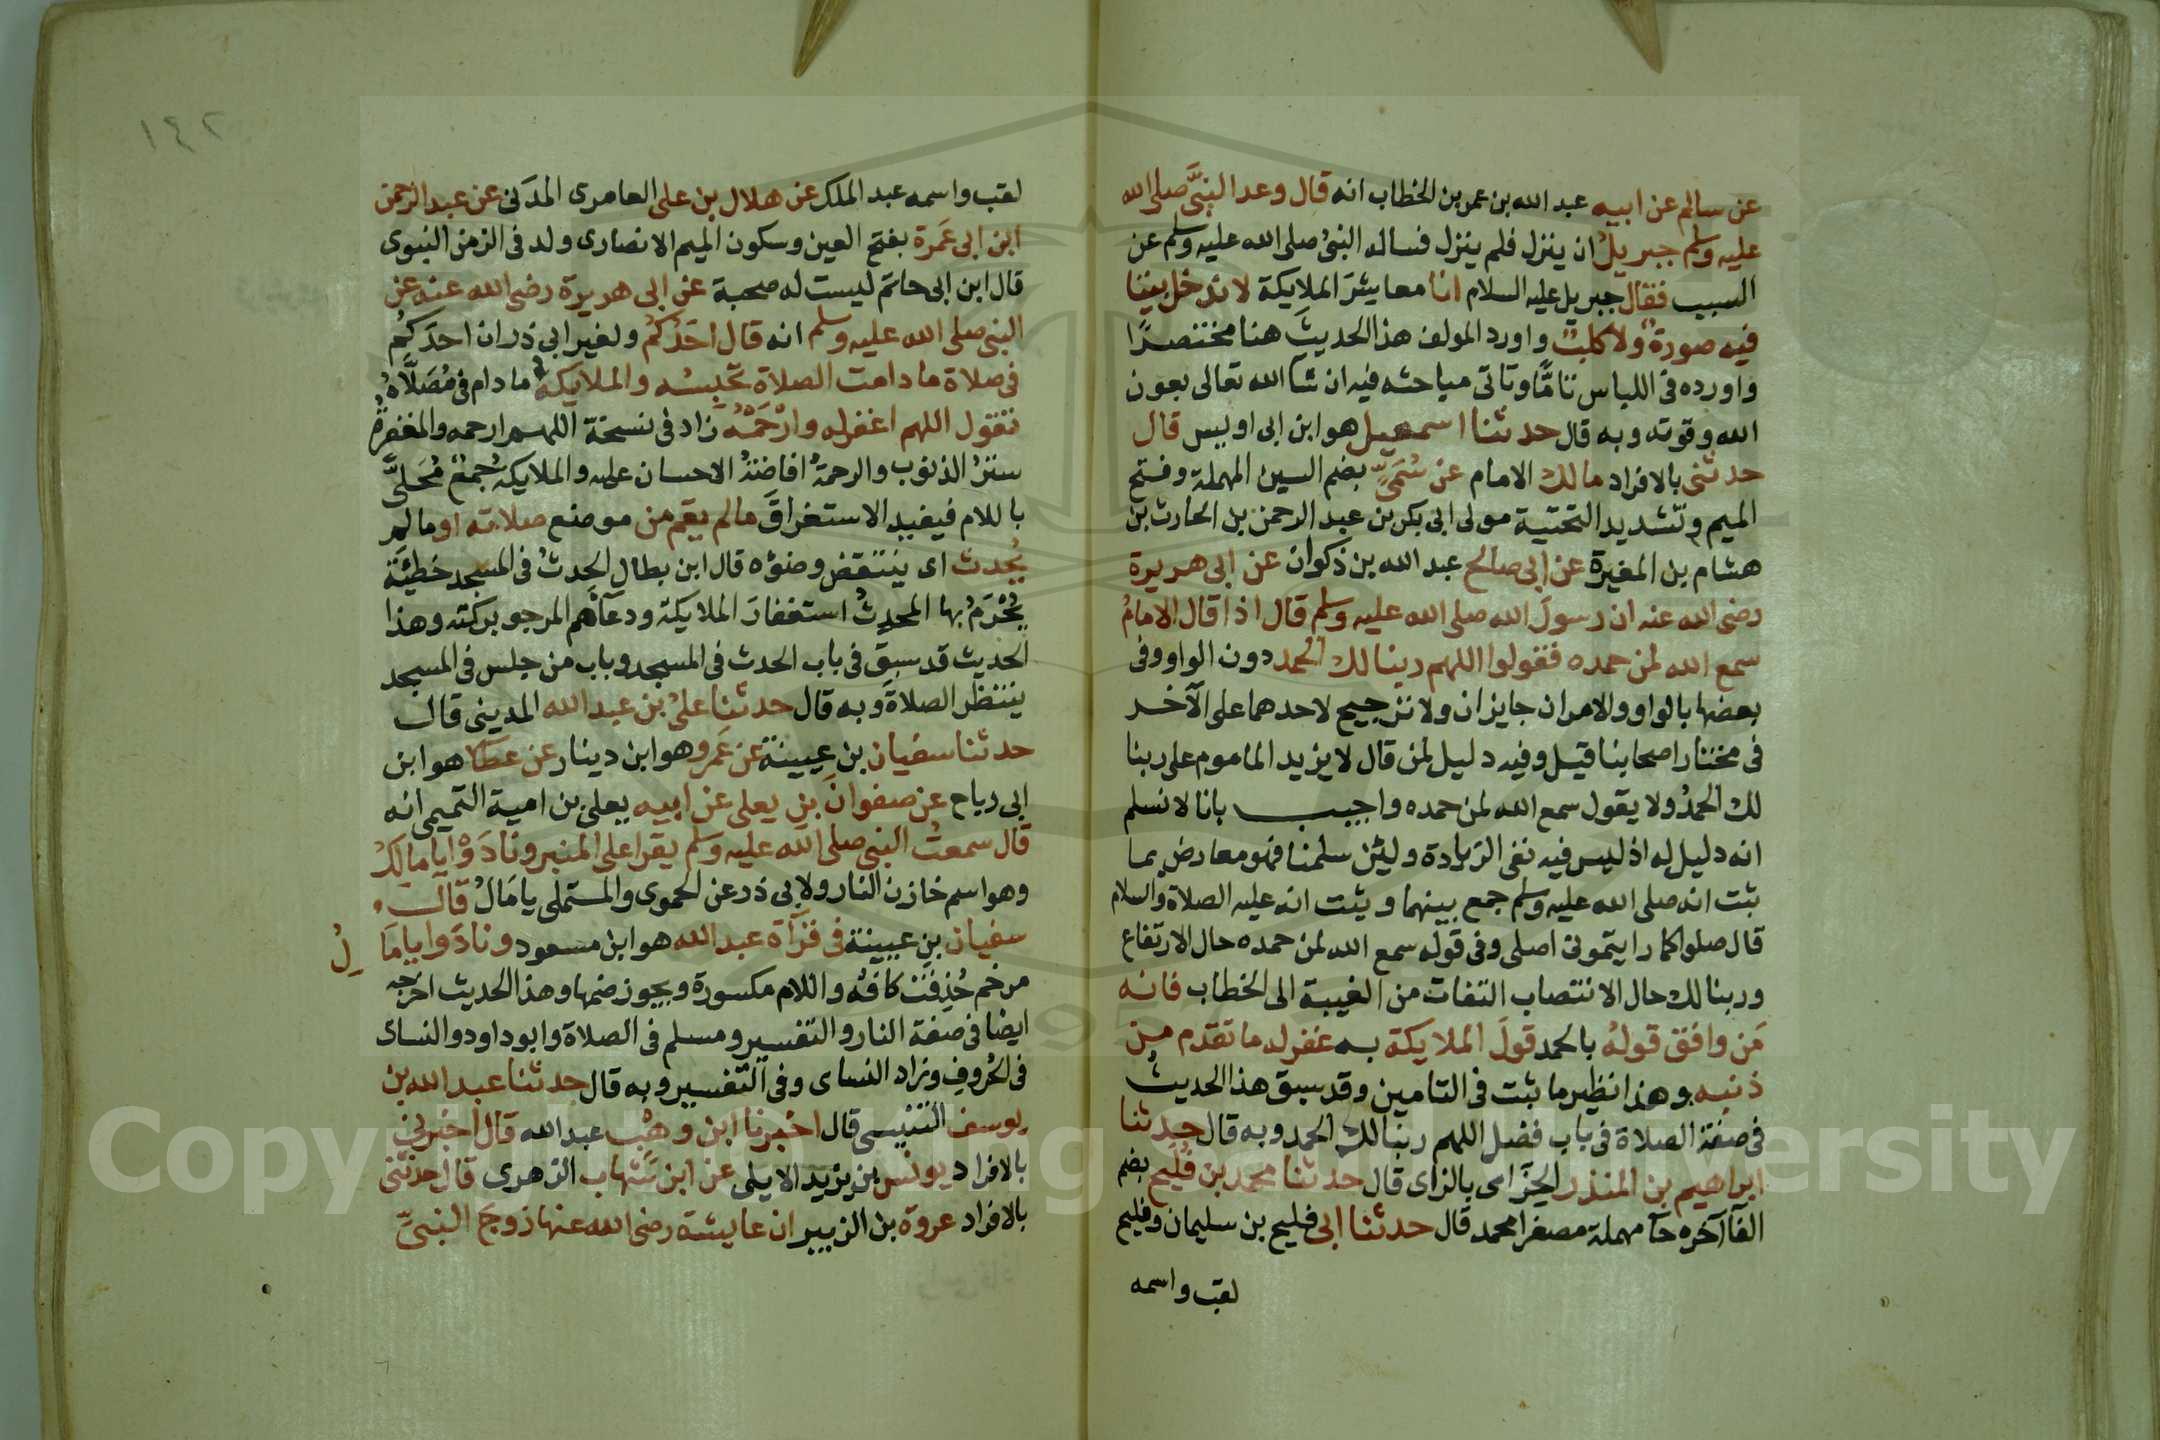 عن سالم عن ابيه عبد الله بن عمر بن الخطاب انه قال وعد النبيَّ صلى الله
عليه وسلم جبريلُ ان ينزل فلم ينزل فساله النبيُ صلى الله عليه وسلم عن
السبب فقال جبريل عليه السلام انا معاشرَ الملايكة لا ندخل بيتا
فيه صورة ولا كلبٌ واورد المولف هذا الحديثَ هنا مختصرًا
واورده في اللباس تامًّا وتاتي مباحثه فيه ان شا الله تعالى بعون
الله وقوته وبه قال حدثنا اسمعيل هو ابن ابي اويس قال
حدثني بالافراد مالك الامام عن سُمَيٍّ بضم السين المهملة وفتح
الميم وتشديد التحتية مولى ابي بكر بن عبد الرحمن بن الحارث بن
هشام بن المغيرة عن ابي صالح عبد الله بن ذكوان عن ابي هريرة
رضي الله عنه ان رسولَ الله صلى الله عليه وسلم قال اذا قال الامامُ
سمع الله لمن حمده فقولوا اللهم ربنا لك الحمد دون الواو وفي
بعضها بالواو والامران جايزان ولا ترجيح لاحدهما على الآخر
في مختار اصحابنا قيل وفيه دليل لمن قال لا يزيد الماموم على ربنا
لك الحمدُ ولا يقول سمع الله لمن حمده واجيب بانا لا نسلم
انه دليل له اذ ليس فيه نفي الزيادة ولئن سلمنا فهو معارض بما
ثبت انه صلى الله عليه وسلم جمع بينهما وثبت انه عليه الصلاة والسلام
قال صلوا كما رايتموني اصلي وفي قوله سمع الله لمن حمده حال الارتفاع
وربنا لك حال الانتصاب التفات من الغيبة الى الخطاب فانه
مَن وافق قولهُ بالحمد قولَ الملايكة به غفر له ما تقدم من
ذنبه وهذا نظير ما ثبت في التامين وقد سبق هذا الحديثُ
في صفة الصلاة في باب فضل اللهم ربنا لك الحمد وبه قال حدثنا
ابراهيم بن المنذر الحِزَامي بالزاى قال حدثنا محمد بن فُليح بضم
الفآ آخره حآ مهملة مصغرا محمد قال حدثنا ابي فليح بن سليمان وفليح
لقب واسمه
١٤٢
لقب واسمه عبد الملك عن هلال بن على العامرى المدَني عن عبد الرحمن
ابن ابي عَمرة بفتح العين وسكون الميم الانصارى ولد في الزمن النبوى
قال ابن ابي حاتم ليست له صحبة عن ابي هريرة رضي الله عنه عن
النبي صلى الله عليه وسلم انه قال احَدُكمُ ولغير ابي ذر ان احدَكمُ
في صلاة ما دامت الصلاة تحبسه والملايكة ما دام في مُصَلَّاهُ
تقول اللهم اغفر له وارْحَمْهُ زاد في نسخة اللهم ارحمه والمغفرةُ
سترُ الذنوب والرحمةُ افاضةُ الاحسان عليه والملايكةُ جمعٌ مُحَلىًّ
باللام فيفيد الاستغراقَ مالم يقم من موضع صلاته او مالم
يُحدث اى ينتقض وضوُه قال ابن بطال الحدثُ في المسجد خطيَئة
يُحْرَمُ بها المحدِثُ استغفارَ الملايكة ودعآهم المرجو بركته وهذا
الحديث قد سبق في باب الحدث في المسجد وباب من جلس في المسجد
ينتظر الصلاةَ وبه قال حدثنا علىُ بن عبد الله المديني قال
حدثنا سفيان بن عيينة عن عَمرو هو ابن دينار عن عطآ هو ابن
ابي رباح عن صفوان بن يعلى عن ابيه يعلى بن امية التميمي انه
قال سمعتُ النبي صلى الله عليه وسلم يقرا على المنبر ونادَوْا يا مالكُ
وهو اسم خازن النار ولابي ذر عن الحموى والمستملي يا مَالُ قال
سفيان بنِ عيينة في قرآة عبد الله هو ابن مسعود ونادَوا يا مَا
لِ
مرخم حُذِفَتْ كافُه واللام مكسورة ويجوز ضمها وهذا الحديث اخرجه
ايضا في صفة النار والتفسير ومسلم في الصلاة وابو داود والنساى
في الحُروف وزاد النساى وفي التفسير وبه قال حدثنا عبد الله بن
يوسف التنيسي قال اخبرنا ابن وهْب عبد الله قال اخبرني
بالافراد يونس بن يزيد الايلي عن ابن شهاب الزهرى قال حدثني
بالافراد عروة بن الزبير ان عايشة رضي الله عنها زوجَ النبيِّ
Copyright © King Saud University
1957